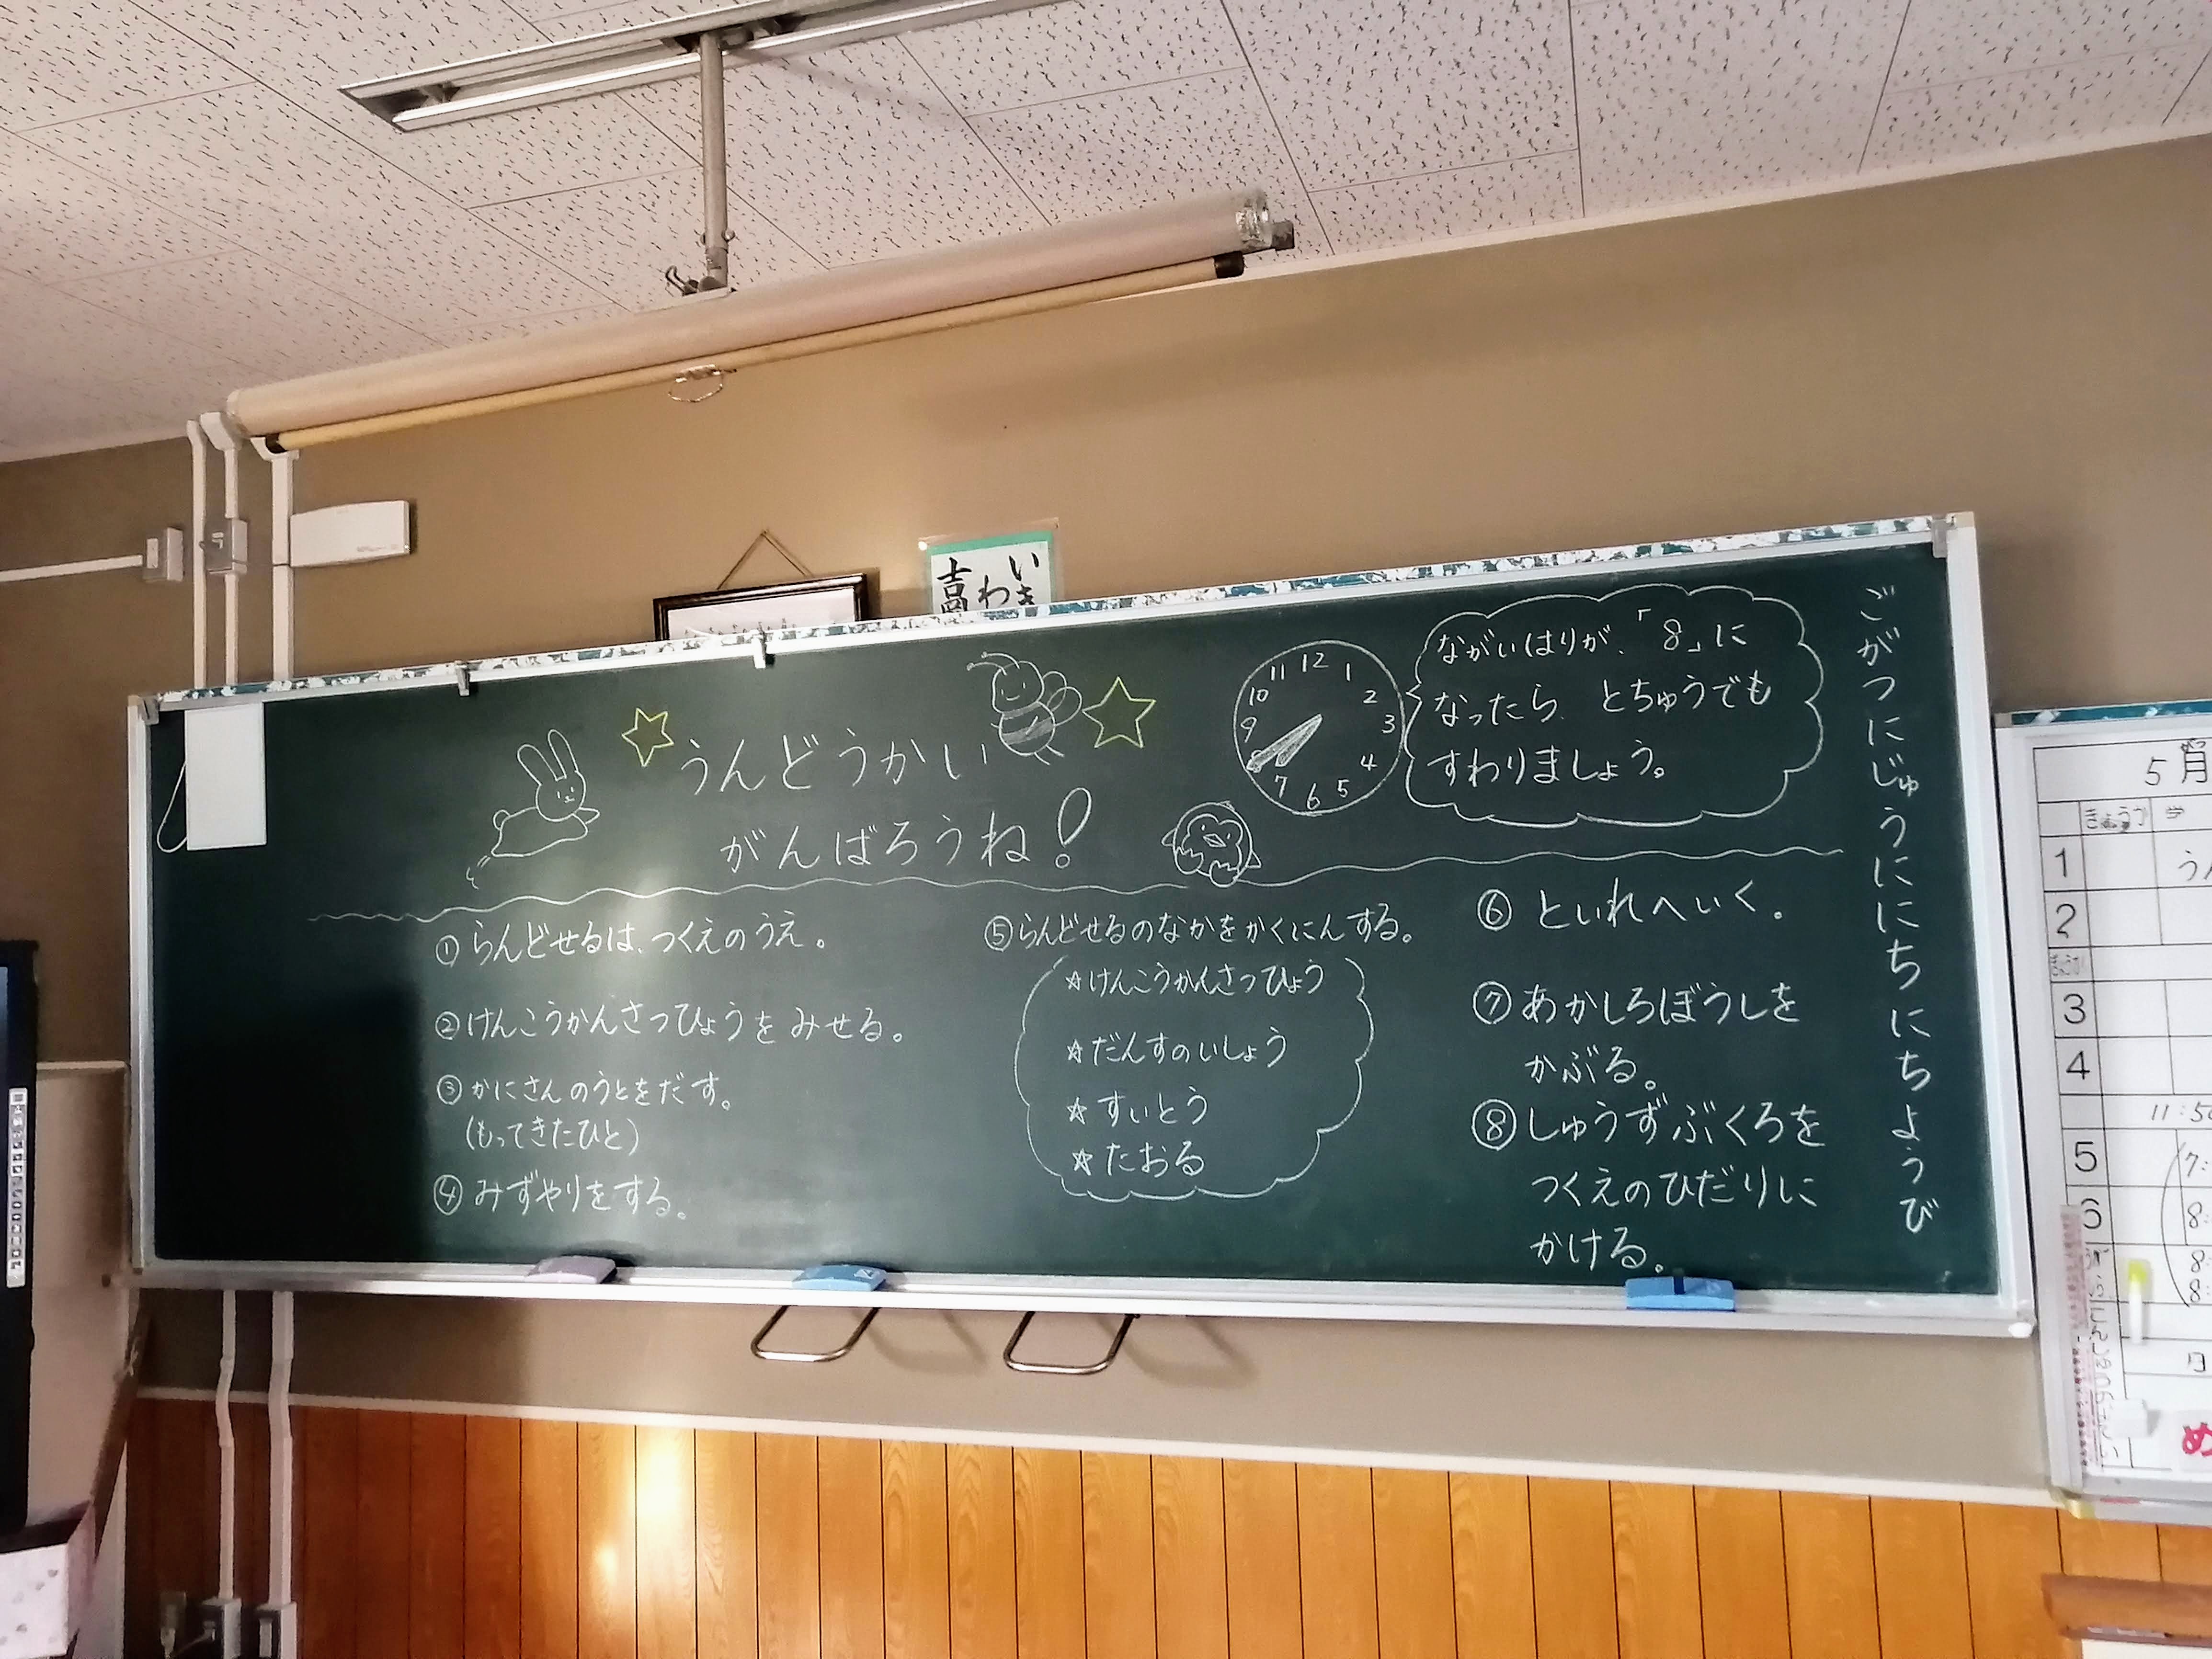 ごがつにじゅうににちにちようび
うんどうかい
がんばろうね!
12
1
2
3
4
5
6
7
9
10
11
ながいはりが、「8」に
なったら、とちゅうでも
すわりましょう。
①らんどせるは、つくえのうえ。
②けんこうかんさっひょうをみせる。
③かにさんのうとをだす。
(もってきたひと)
④みずやりをする。
⑤らんどせるのなかをかくにんする。
☆けんこうかんさっひょう
☆だんすのいしょう
☆すいとう
☆たおる
⑥といれへいく。
⑦あかしろぼうしを
かぶる。
⑧しゅうずぶくろを
つくえのひだりに
かける。
5月
1
2
3
4
5
6